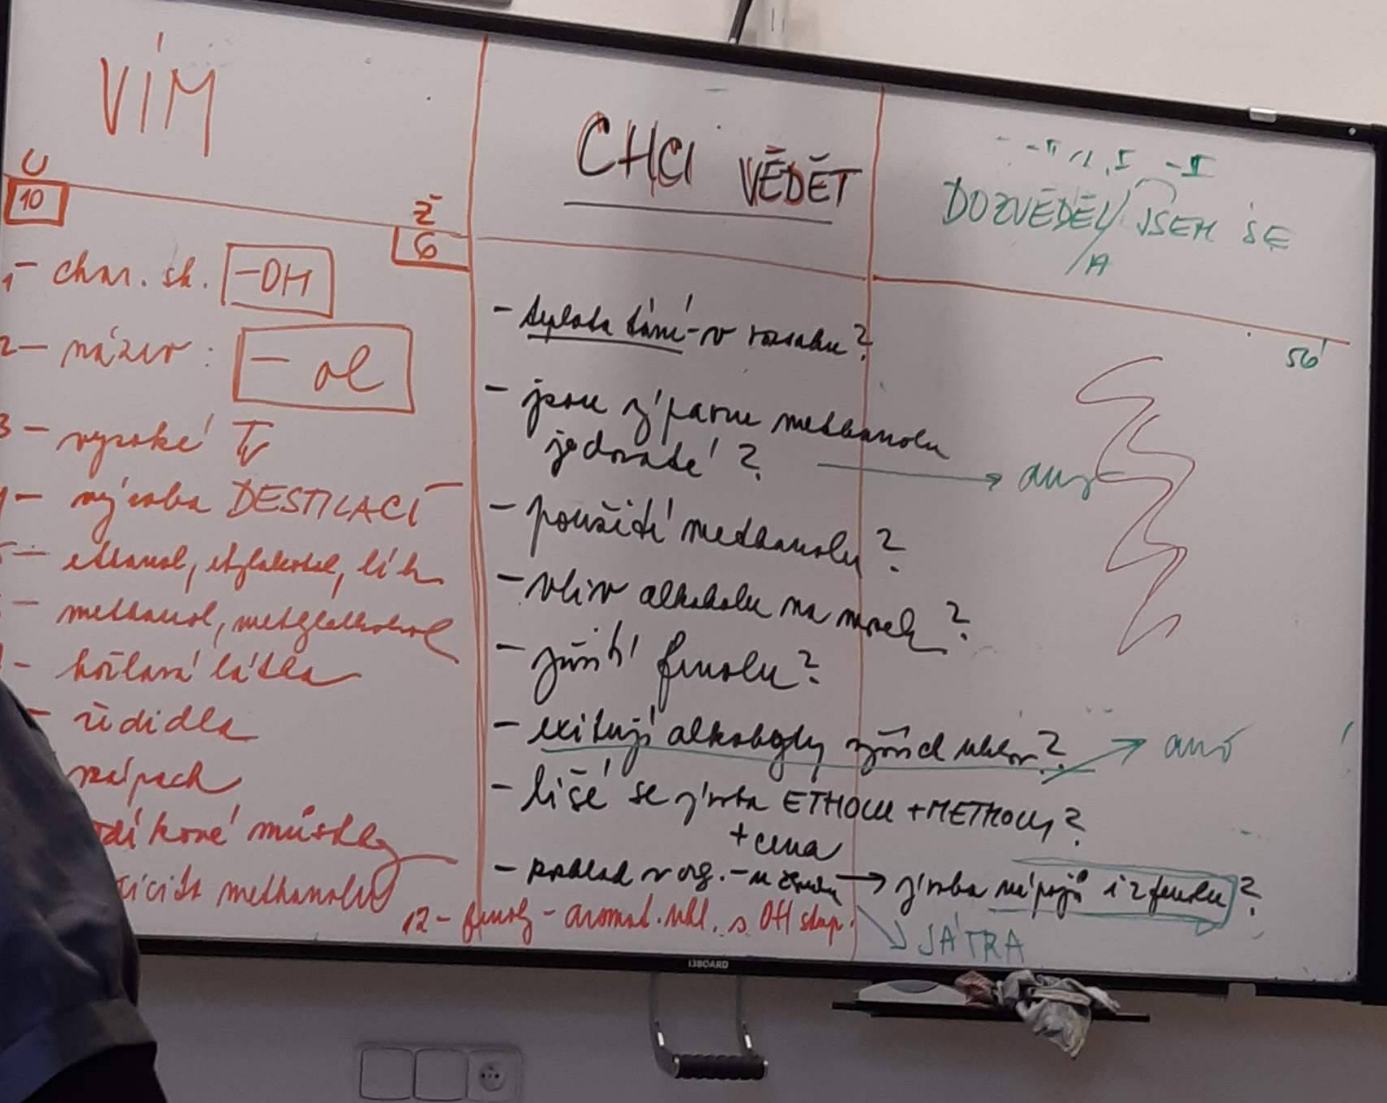 VÍM
U
10
Ž
6
1- char. sk. -OH
2- název: -ol
3- vysoké Tv
- výroba DESTILACÍ
- ethanol, ethylalkohol, líh
- methanol, methylalkohol
- hořlavá látka
- ředidla
zápach
můstky
methanolu
12- fenoly - aromat. uhl. s OH skup.
CHCI VĚDĚT
- teplota tání - v rozsahu?
- jsou výpary methanolu
jedovaté?
ano
- použití methanolu?
- vliv alkoholu na mozek?
- využití fenolu?
- existují alkoholy uhlov?
ano
- liší se výroba ETHOLU + METHOLU?
+ cena
- rozklad v org. → výroba nápojů i z fenolu?
JÁTRA
DOZVĚDĚL/A JSEM SE
56'
I3BOARD